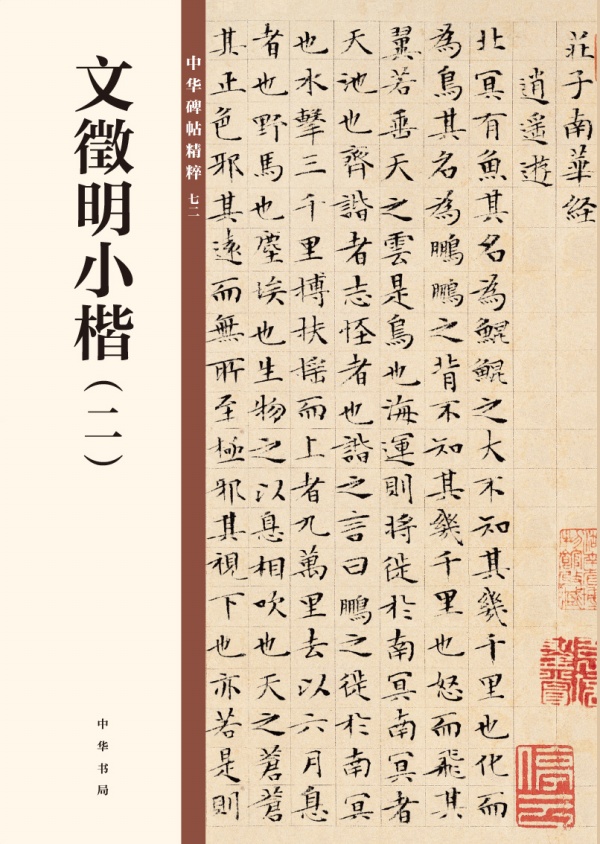 文徵明小楷（二）
中华碑帖精粹 七二
中华书局
莊子南華経
逍遥遊
北冥有魚其名為鯤鯤之大不知其幾千里也化而
為鳥其名為鵬鵬之背不知其幾千里也怒而飛其
翼若垂天之雲是鳥也海運則将徙於南冥南冥者
天池也齊諧者志怪者也諧之言曰鵬之徙於南冥
也水擊三千里摶扶摇而上者九萬里去以六月息
者也野馬也塵埃也生物之以息相吹也天之蒼蒼
其正色邪其遠而無所至極邪其視下也亦若是則